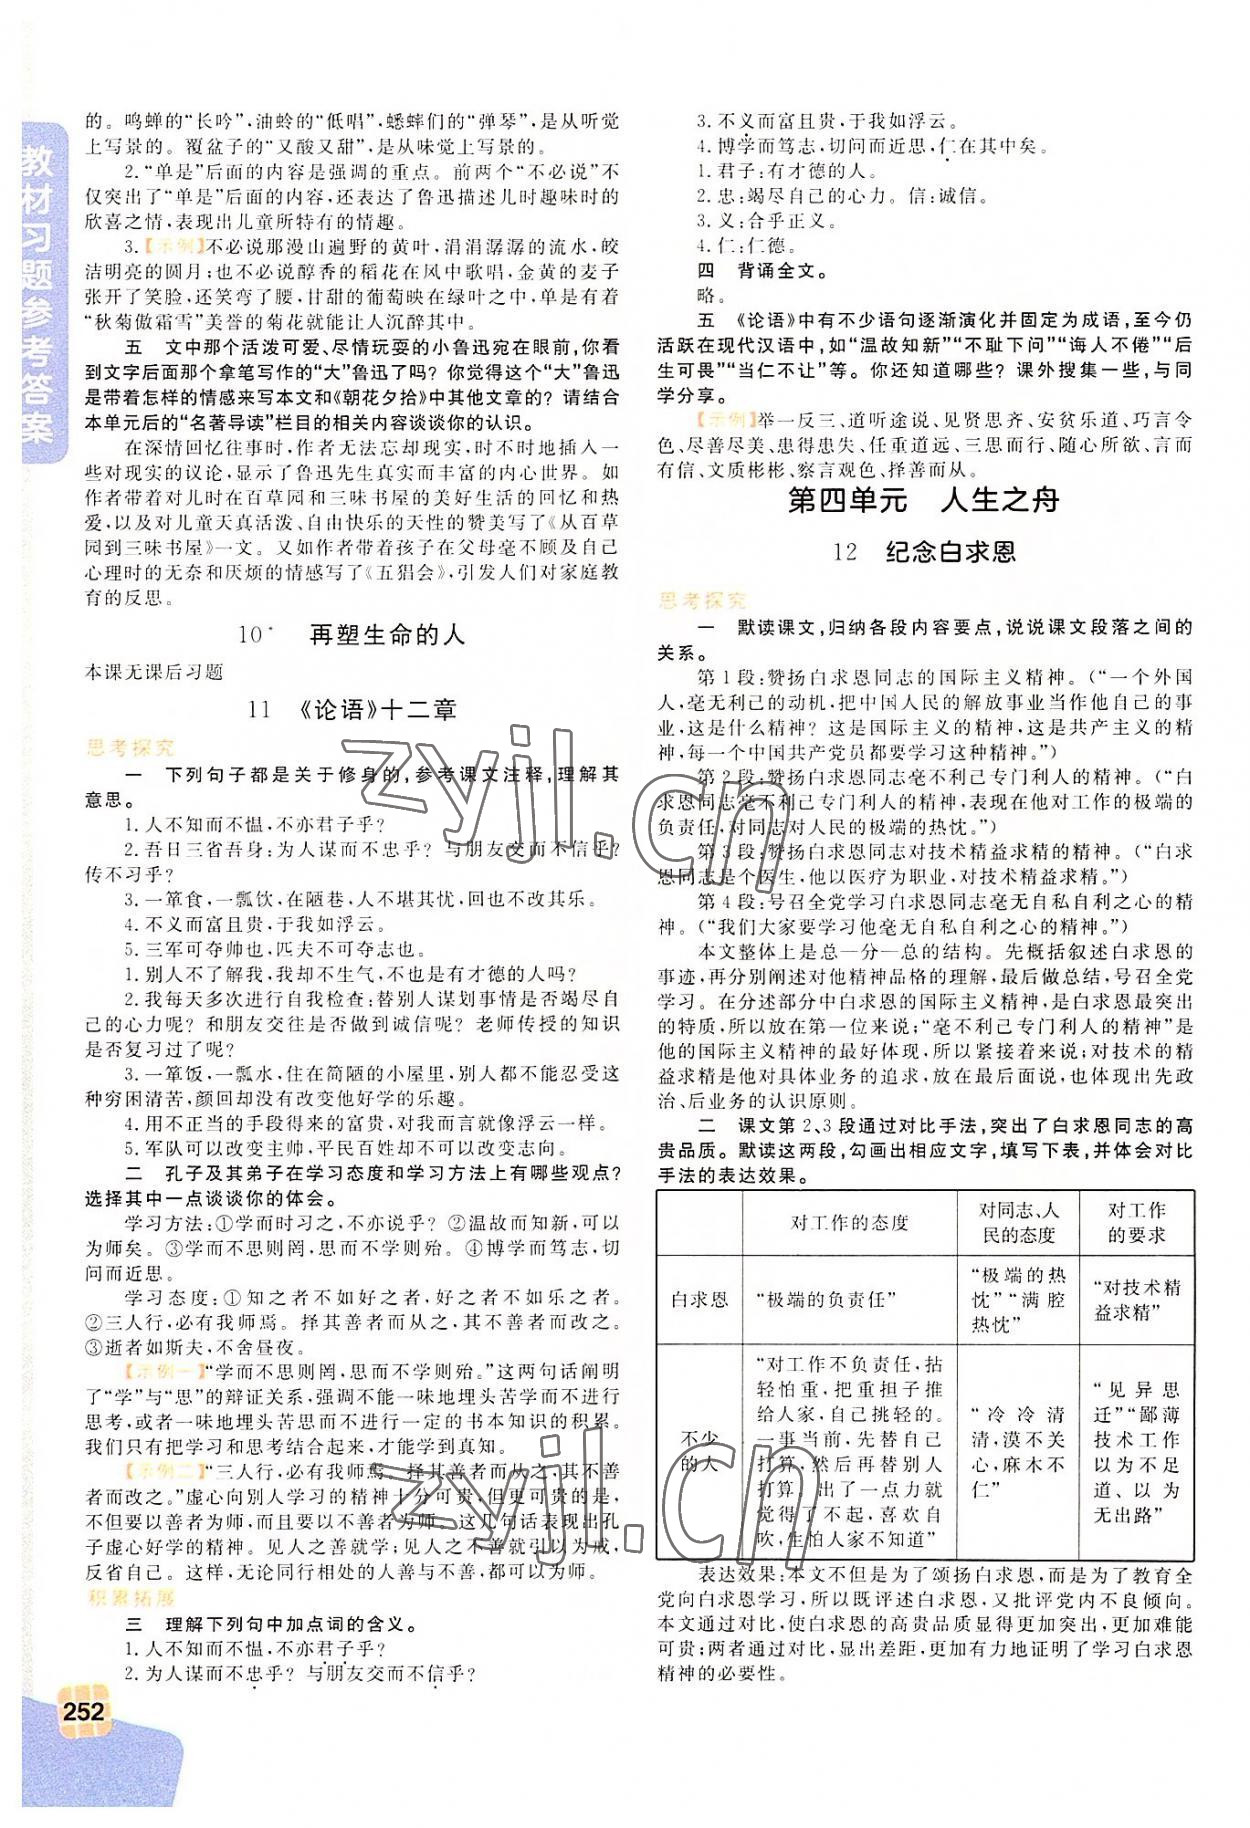 教材习题参考答案
的。鸣蝉的“长吟”,油蛉的“低唱”,蟋蟀们的“弹琴”,是从听觉
上写景的。覆盆子的“又酸又甜”,是从味觉上写景的。
2.“单是”后面的内容是强调的重点。前两个“不必说”不
仅突出了“单是”后面的内容,还表达了鲁迅描述儿时趣味时的
欣喜之情,表现出儿童所特有的情趣。
3.【示例】不必说那漫山遍野的黄叶,涓涓潺潺的流水,皎
洁明亮的圆月;也不必说醇香的稻花在风中歌唱,金黄的麦子
张开了笑脸,还笑弯了腰,甘甜的葡萄映在绿叶之中,单是有着
“秋菊傲霜雪”美誉的菊花就能让人沉醉其中。
五　文中那个活泼可爱、尽情玩耍的小鲁迅宛在眼前,你看
到文字后面那个拿笔写作的“大”鲁迅了吗?你觉得这个“大”鲁迅
是带着怎样的情感来写本文和《朝花夕拾》中其他文章的?请结合
本单元后的“名著导读”栏目的相关内容谈谈你的认识。
在深情回忆往事时,作者无法忘却现实,时不时地插入一
些对现实的议论,显示了鲁迅先生真实而丰富的内心世界。如
作者带着对儿时在百草园和三味书屋的美好生活的回忆和热
爱,以及对儿童天真活泼、自由快乐的天性的赞美写了《从百草
园到三味书屋》一文。又如作者带着孩子在父母毫不顾及自己
心理时的无奈和厌烦的情感写了《五猖会》,引发人们对家庭教
育的反思。
10*　再塑生命的人
本课无课后习题
11　《论语》十二章
思考探究
一　下列句子都是关于修身的,参考课文注释,理解其
意思。
1.人不知而不愠,不亦君子乎?
2.吾日三省吾身:为人谋而不忠乎?与朋友交而不信乎?
传不习乎?
3.一箪食,一瓢饮,在陋巷,人不堪其忧,回也不改其乐。
4.不义而富且贵,于我如浮云。
5.三军可夺帅也,匹夫不可夺志也。
1.别人不了解我,我却不生气,不也是有才德的人吗?
2.我每天多次进行自我检查:替别人谋划事情是否竭尽自
己的心力呢?和朋友交往是否做到诚信呢?老师传授的知识
是否复习过了呢?
3.一箪饭,一瓢水,住在简陋的小屋里,别人都不能忍受这
种穷困清苦,颜回却没有改变他好学的乐趣。
4.用不正当的手段得来的富贵,对我而言就像浮云一样。
5.军队可以改变主帅,平民百姓却不可改变志向。
二　孔子及其弟子在学习态度和学习方法上有哪些观点?
选择其中一点谈谈你的体会。
学习方法:①学而时习之,不亦说乎?②温故而知新,可以
为师矣。③学而不思则罔,思而不学则殆。④博学而笃志,切
问而近思。
学习态度:①知之者不如好之者,好之者不如乐之者。
②三人行,必有我师焉。择其善者而从之,其不善者而改之。
③逝者如斯夫,不舍昼夜。
【示例一】“学而不思则罔,思而不学则殆。”这两句话阐明
了“学”与“思”的辩证关系,强调不能一味地埋头苦学而不进行
思考,或者一味地埋头苦思而不进行一定的书本知识的积累。
我们只有把学习和思考结合起来,才能学到真知。
【示例二】“三人行,必有我师焉。择其善者而从之,其不善
者而改之。”虚心向别人学习的精神十分可贵,但更可贵的是,
不但要以善者为师,而且要以不善者为师。这几句话表现出孔
子虚心好学的精神。见人之善就学;见人之不善就引以为戒,
反省自己。这样,无论同行相处的人善与不善,都可以为师。
积累拓展
三　理解下列句中加点词的含义。
1.人不知而不愠,不亦君子乎?
2.为人谋而不忠乎?与朋友交而不信乎?
252
3.不义而富且贵,于我如浮云。
4.博学而笃志,切问而近思,仁在其中矣。
1.君子:有才德的人。
2.忠:竭尽自己的心力。信:诚信。
3.义:合乎正义。
4.仁:仁德。
四　背诵全文。
略。
五　《论语》中有不少语句逐渐演化并固定为成语,至今仍
活跃在现代汉语中,如“温故知新”“不耻下问”“诲人不倦”“后
生可畏”“当仁不让”等。你还知道哪些?课外搜集一些,与同
学分享。
【示例】举一反三、道听途说、见贤思齐、安贫乐道、巧言令
色、尽善尽美、患得患失、任重道远、三思而行、随心所欲、言而
有信、文质彬彬、察言观色、择善而从。
第四单元　人生之舟
12　纪念白求恩
思考探究
一　默读课文,归纳各段内容要点,说说课文段落之间的
关系。
第1段:赞扬白求恩同志的国际主义精神。(“一个外国
人,毫无利己的动机,把中国人民的解放事业当作他自己的事
业,这是什么精神?这是国际主义的精神,这是共产主义的精
神,每一个中国共产党员都要学习这种精神。”)
第2段:赞扬白求恩同志毫不利己专门利人的精神。(“白
求恩同志毫不利己专门利人的精神,表现在他对工作的极端的
负责任,对同志对人民的极端的热忱。”)
第3段:赞扬白求恩同志对技术精益求精的精神。(“白求
恩同志是个医生,他以医疗为职业,对技术精益求精。”)
第4段:号召全党学习白求恩同志毫无自私自利之心的精
神。(“我们大家要学习他毫无自私自利之心的精神。”)
本文整体上是总—分—总的结构。先概括叙述白求恩的
事迹,再分别阐述对他精神品格的理解,最后做总结,号召全党
学习。在分述部分中白求恩的国际主义精神,是白求恩最突出
的特质,所以放在第一位来说;“毫不利己专门利人的精神”是
他的国际主义精神的最好体现,所以紧接着来说;对技术的精
益求精是他对具体业务的追求,放在最后面说,也体现出先政
治、后业务的认识原则。
二　课文第2、3段通过对比手法,突出了白求恩同志的高
贵品质。默读这两段,勾画出相应文字,填写下表,并体会对比
手法的表达效果。
对工作的态度
对同志、人
民的态度
对工作
的要求
白求恩
“极端的负责任”
“极端的热
忱”“满腔
热忱”
“对技术精
益求精”
不少
的人
“对工作不负责任,拈
轻怕重,把重担子推
给人家,自己挑轻的。
一事当前,先替自己
打算,然后再替别人
打算。出了一点力就
觉得了不起,喜欢自
吹,生怕人家不知道”
“冷冷清
清,漠不关
心,麻木不
仁”
“见异思
迁”“鄙薄
技术工作
以为不足
道、以为
无出路”
表达效果:本文不但是为了颂扬白求恩,而是为了教育全
党向白求恩学习,所以既评述白求恩,又批评党内不良倾向。
本文通过对比,使白求恩的高贵品质显得更加突出,更加难能
可贵;两者通过对比,显出差距,更加有力地证明了学习白求恩
精神的必要性。
zyjl.cn
zyjl.cn